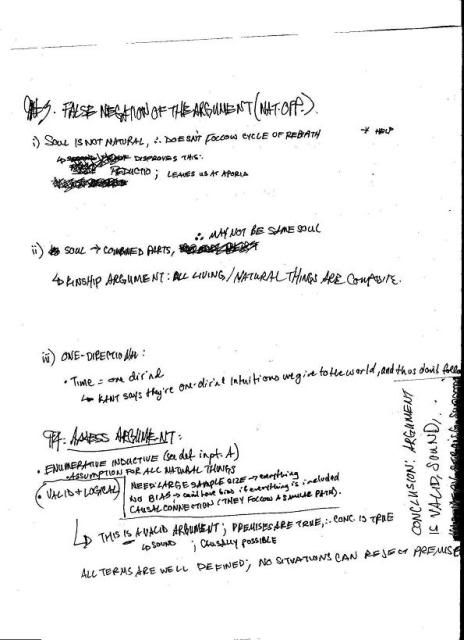 FALSE NEGATION OF THE ARGUMENT (NAT. OPP.).
i) SOUL IS NOT NATURAL, ∴ DOESN'T FOLLOW CYCLE OF REBIRTH → HELP
↳ DISPROVES THIS:
REDUCTIO ; LEAVES US AT APORIA
∴ MAY NOT BE SAME SOUL
ii) SOUL → COMBINED PARTS,
↳ KINSHIP ARGUMENT: ALL LIVING/NATURAL THINGS ARE COMPOSITE.
iii) ONE-DIRECTIONAL:
• Time = one dir'nal
↳ KANT says they're one-dir'nal intuitions we give to the world, and thus don't follow
Q4: ASSESS ARGUMENT:
• ENUMERATIVE INDUCTIVE (see def. in pt. A)
ASSUMPTION FOR ALL NATURAL THINGS
• VALID + LOGICAL
NEED LARGE SAMPLE SIZE → everything
NO BIAS → can't have bias if everything is included
CAUSAL CONNECTION (THEY FOLLOW A SIMILAR PATH).
↳ THIS IS A VALID ARGUMENT ; PREMISES ARE TRUE, ∴ CONC. IS TRUE
↳ SOUND ; Causally possible
ALL TERMS ARE WELL DEFINED ; NO SITUATIONS CAN REJECT PREMISE
CONCLUSION: ARGUMENT
IS VALID, SOUND,